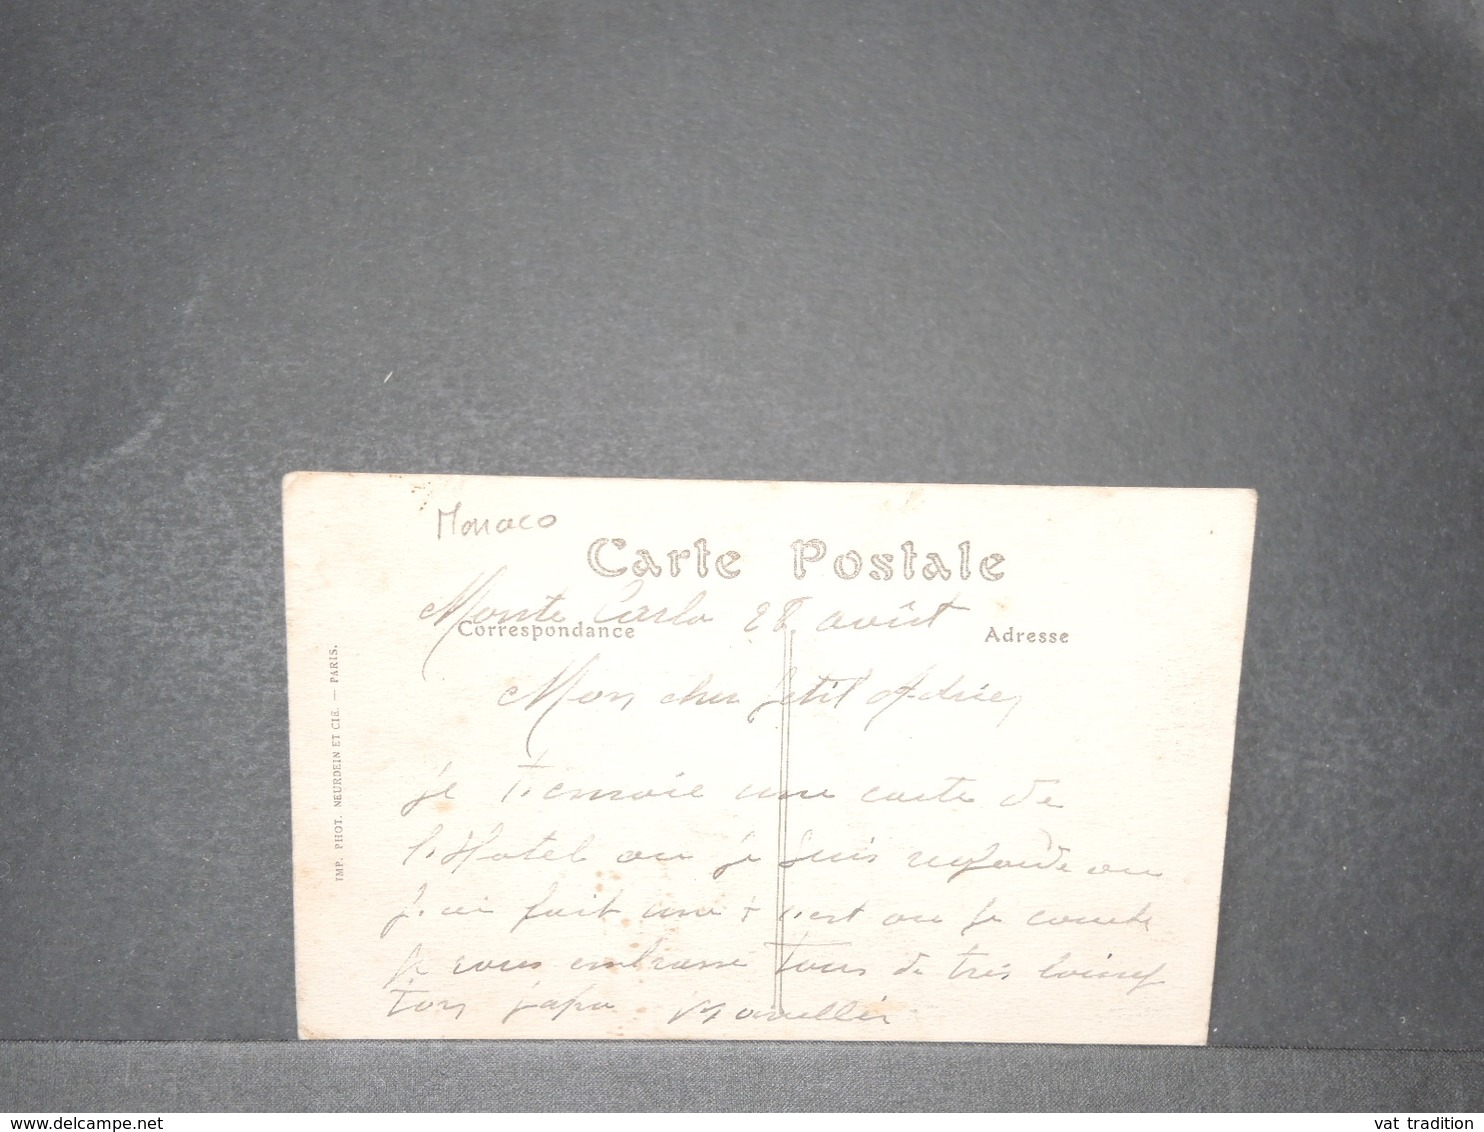 Monaco
Carte Postale
Monte Carlo 28 août
Correspondance
Adresse
Mon cher petit Adrien
je t'envoie une carte de
l'Hotel ou je suis regarde ou
j'ai fait une + c'est ou je couche
je vous embrasse tous de très loin
ton papa
IMP. PHOT. NEURDEIN ET CIE. — PARIS.
vat tradition